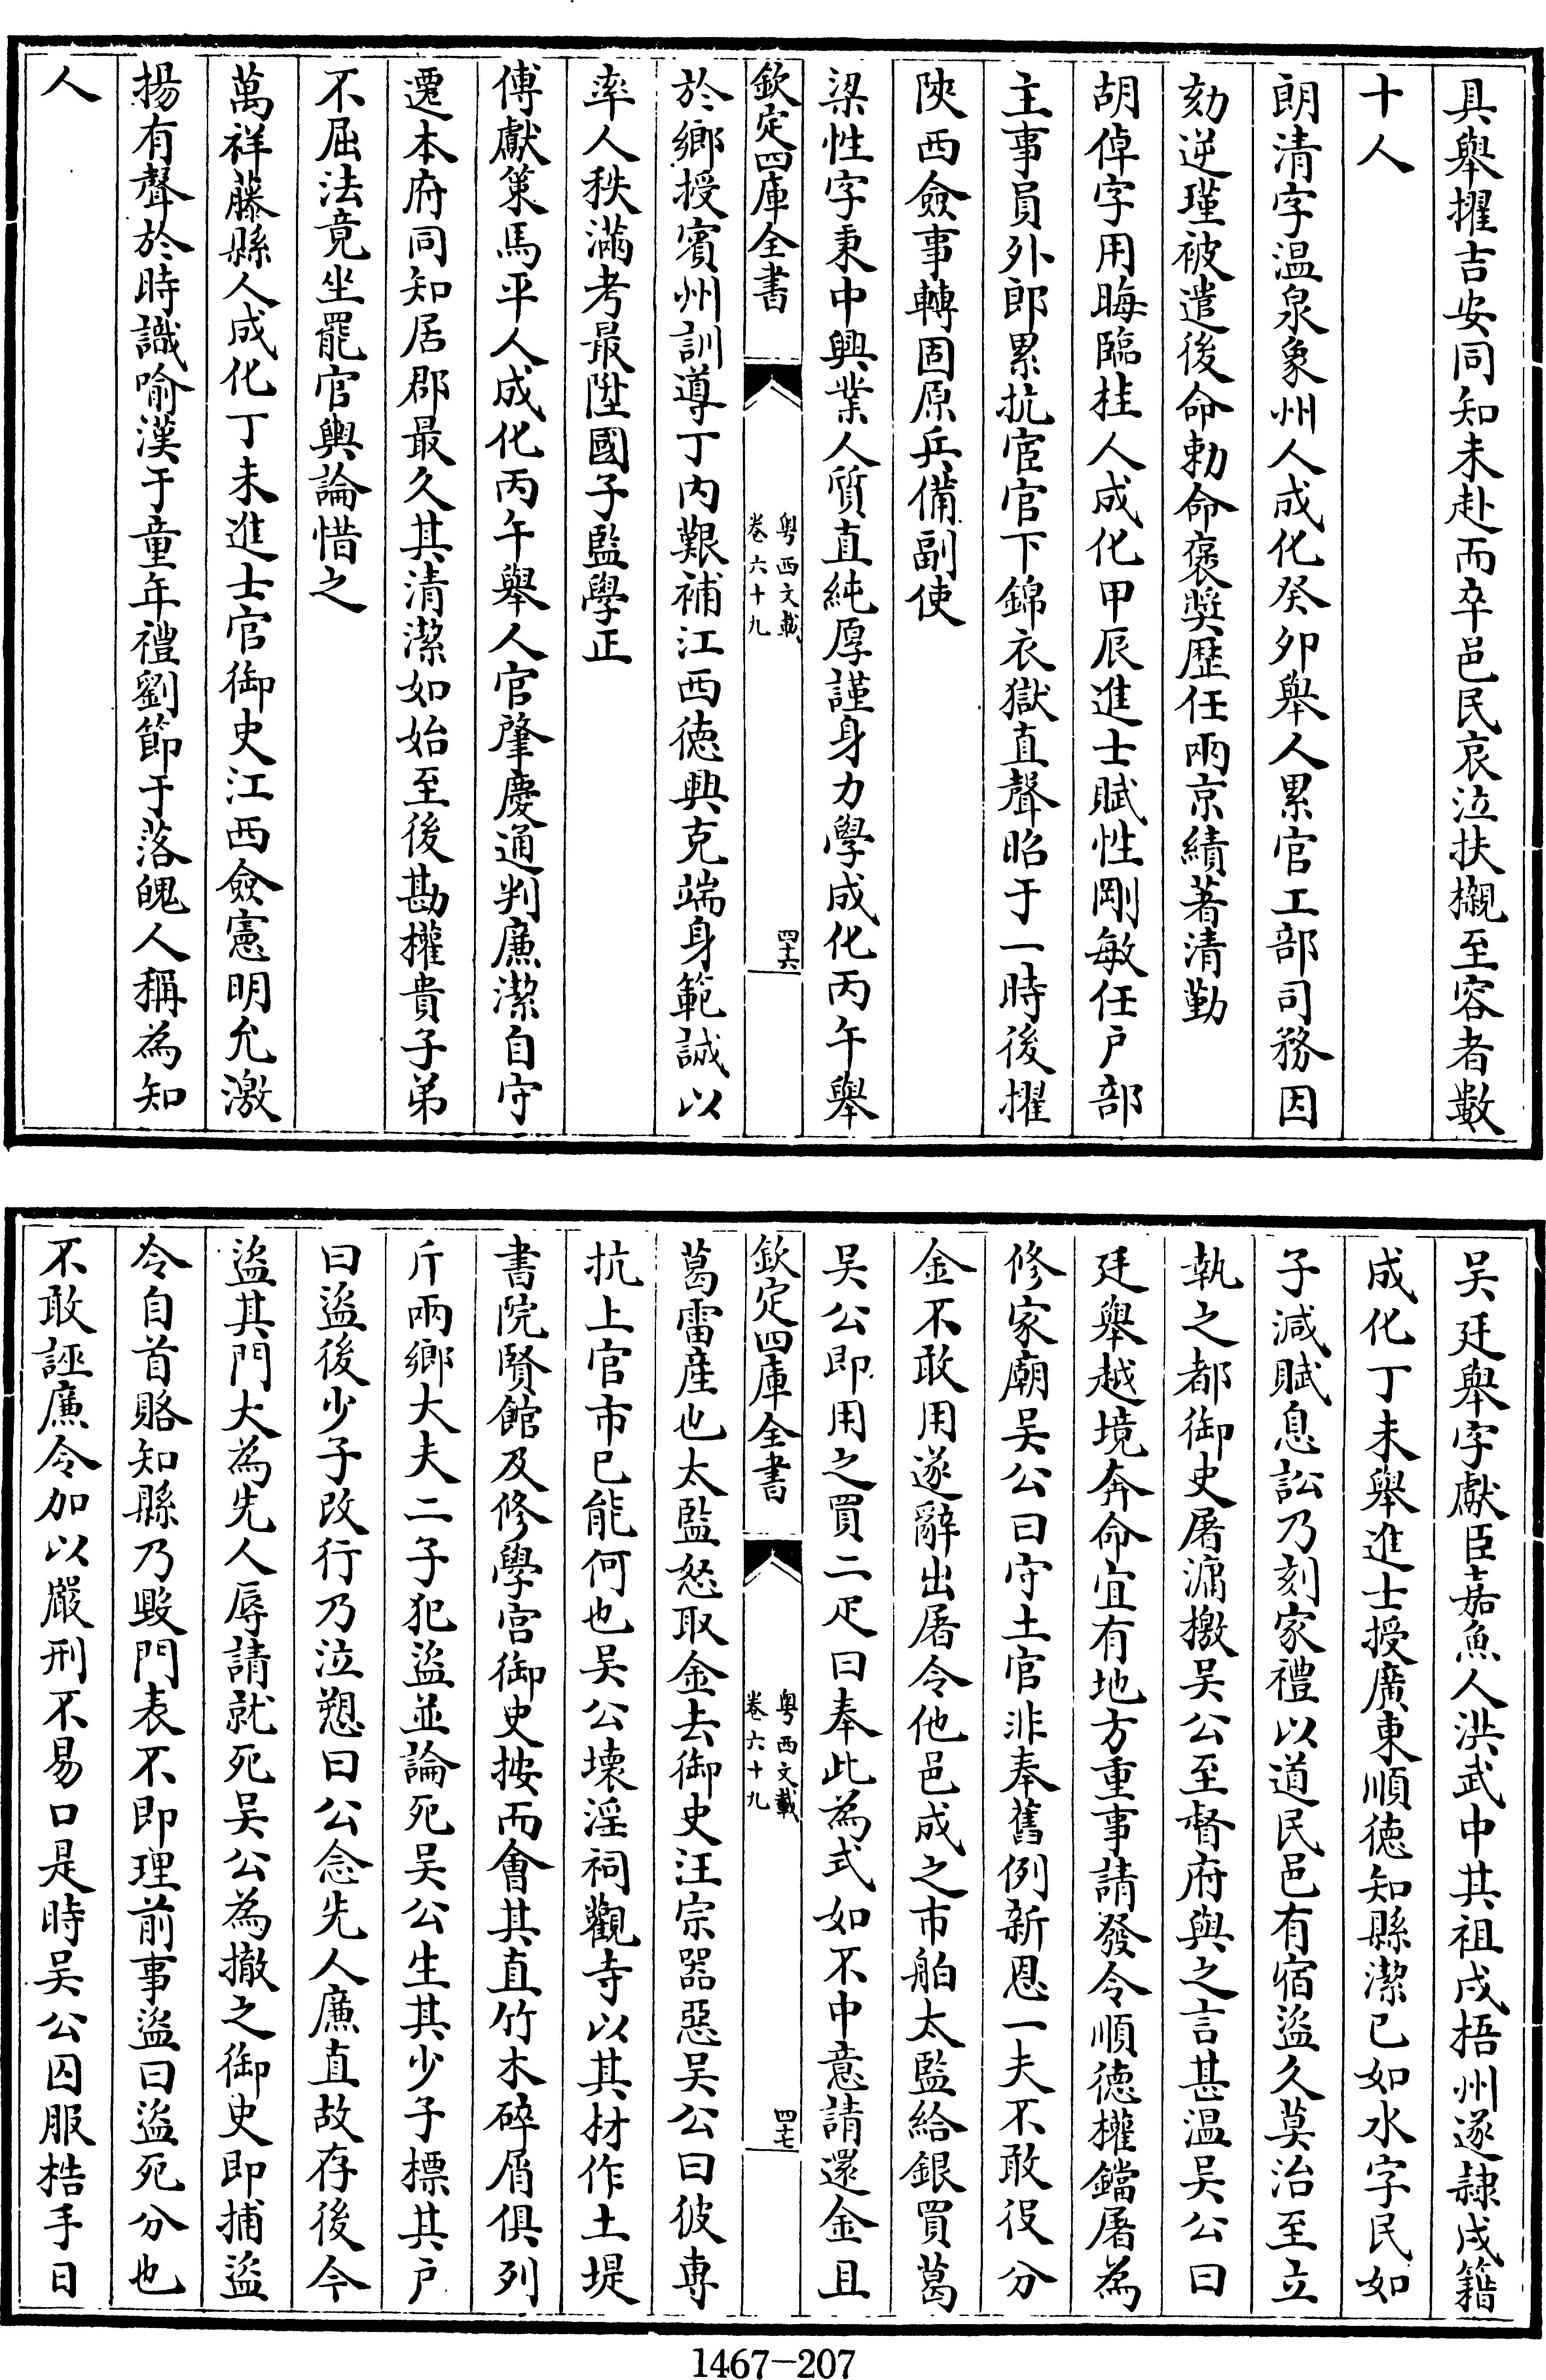 具舉擢吉安同知未赴而卒邑民哀泣扶櫬至容者數
十人
朗清字温泉象州人成化癸卯舉人累官工部司務因
劾逆瑾被遣後命勅命褒奬歴任兩京績著清勤
胡倬字用晦臨桂人成化甲辰進士賦性剛敏任户部
主事員外郎累抗宦官下錦衣獄直聲昭于一時後擢
陜西僉事轉固原兵備副使
梁性字秉中興業人質直純厚謹身力學成化丙午舉
欽定四庫全書
粤西文載
卷六十九
四十六
於鄉授賓州訓導丁内艱補江西徳興克端身範誠以
率人秩滿考最陞國子監學正
傅獻策馬平人成化丙午舉人官肇慶通判廉潔自守
遷本府同知居郡最久其清潔如始至後勘權貴子弟
不屈法竟坐罷官輿論惜之
萬祥藤縣人成化丁未進士官御史江西僉憲明允激
揚有聲於時識喻漢于童年禮劉節于落魄人稱為知
人
吴廷舉字獻臣嘉魚人洪武中其祖戍梧州遂隷戍籍
成化丁未舉進士授廣東順徳知縣潔已如水字民如
子減賦息訟乃刻家禮以道民邑有宿盜久莫治至立
執之都御史屠滽檄吴公至督府與之言甚温吴公曰
廷舉越境奔命宜有地方重事請發令順徳權鐺屠為
修家廟吴公曰守土官非奉舊例新恩一夫不敢役分
金不敢用遂辭出屠令他邑成之市舶太監給銀買葛
吴公即用之買二疋曰奉此為式如不中意請還金且
欽定四庫全書
粤西文載
卷六十九
四十七
葛雷産也太監怒取金去御史汪宗器惡吴公曰彼専
抗上官市已能何也吴公壊淫祠觀寺以其材作土堤
書院賢館及修學宫御史按而會其直竹木碎屑俱列
斤兩鄉大夫二子犯盜並論死吴公生其少子標其户
曰盜後少子改行乃泣愬曰公念先人廉直故存後今
盜其門大為先人辱請就死吴公為撤之御史即捕盜
令自首賂知縣乃毁門表不即理前事盜曰盜死分也
不敢誣廉令加以嚴刑不易口是時吴公囚服梏手日
1467-207